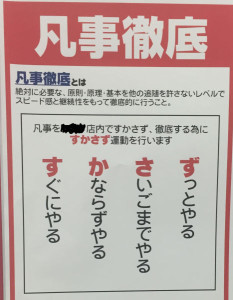 凡事徹底
凡事徹底とは
絶対に必要な、原則・原理・基本を他の追随を許さないレベルで
スピード感と継続性をもって徹底的に行うこと。
凡事を店内ですかさず、徹底する為に
すかさず運動を行います
ずっとやる
さいごまでやる
かならずやる
すぐにやる